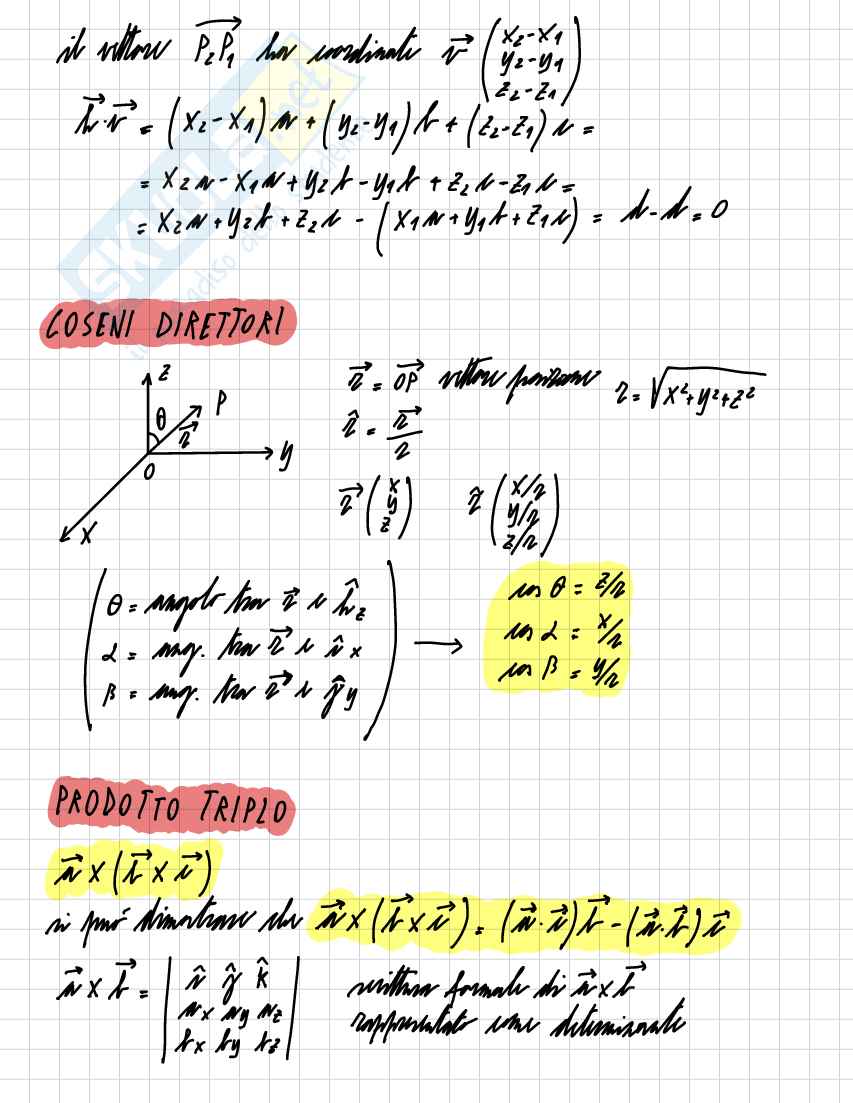 il vettore P₂P₁ ha coordinate v⃗ (x₂-x₁
y₂-y₁
z₂-z₁)
h⃗·v⃗ = (x₂-x₁)a+(y₂-y₁)b+(z₂-z₁)c =
= x₂a-x₁a+y₂b-y₁b+z₂c-z₁c=
= x₂a+y₂b+z₂c-(x₁a+y₁b+z₁c) = d-d=0
COSENI DIRETTORI
z
P
θ
r⃗
O
y
x
r⃗ = OP⃗ vettore posizione r=√x²+y²+z²
r̂ = r⃗/r
r⃗ (x
y
z)
r̂ (x/r
y/r
z/r)
θ = angolo tra r⃗ e ĥz
α = ang. tra r⃗ e î x
β = ang. tra r⃗ e ĵ y
→
cos θ = z/r
cos α = x/r
cos β = y/r
PRODOTTO TRIPLO
a⃗ x (b⃗ x c⃗)
si può dimostrare che a⃗ x (b⃗ x c⃗) = (a⃗·c⃗)b⃗-(a⃗·b⃗)c⃗
a⃗ x b⃗ = | î ĵ k̂
ax ay az
bx by bz |
scrittura formale di a⃗ x b⃗
rappresentato come determinante
SKUOLA.net